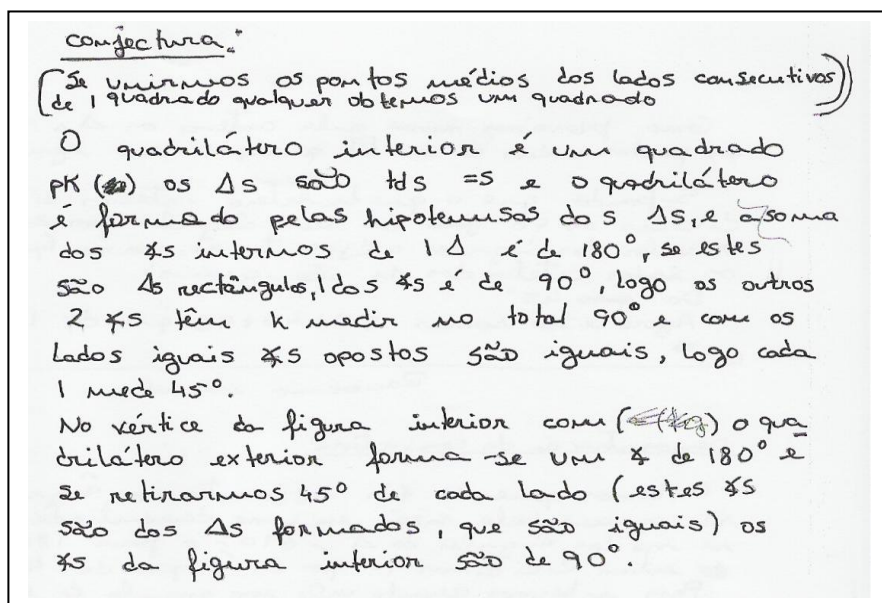 conjectura:
(Se unirmos os pontos médios dos lados consecutivos
de 1 quadrado qualquer obtemos um quadrado)
O quadrilátero interior é um quadrado
pk os Δs são tds =s e o quadrilátero
é formado pelas hipotenusas dos Δs, e a soma
dos ∡s internos de 1 Δ é de 180°, se estes
são Δs rectângulos, 1 dos ∡s é de 90°, logo os outros
2 ∡s têm k medir no total 90° e com os
lados iguais ∡s opostos são iguais, logo cada
1 mede 45°.
No vértice da figura interior com o qua
drilátero exterior forma-se um ∡ de 180° e
se retirarmos 45° de cada lado (estes ∡s
são dos Δs formados, que são iguais) os
∡s da figura interior são de 90°.